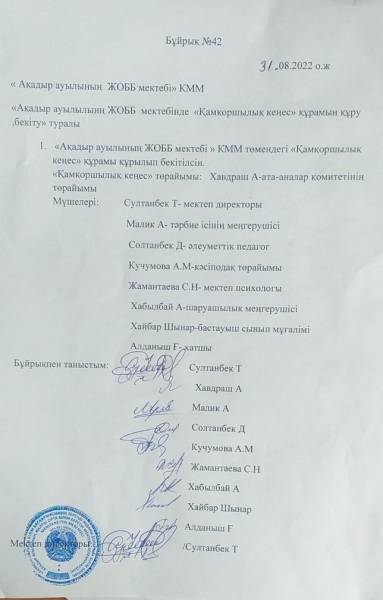 Бұйрық №42
31.08.2022 о.ж
« Ақадыр ауылының ЖОББ мектебі» КММ
«Ақадыр ауылылының ЖОББ мектебінде «Қамқоршылық кеңес» құрамын құру
,бекіту» туралы
1. «Ақадыр ауылының ЖОББ мектебі » КММ төмендегі «Қамқоршылық
кеңес» құрамы құрылып бекітілсін.
«Қамқоршылық кеңес» төрайымы: Хавдраш А-ата-аналар комитетінің
төрайымы
Мүшелері: Султанбек Т- мектеп директоры
Малик А- тәрбие ісінің меңгерушісі
Солтанбек Д- әлеуметтік педагог
Кучумова А.М-кәсіподақ төрайымы
Жамантаева С.Н- мектеп психологы
Хабылбай А-шаруашылық меңгерушісі
Хайбар Шынар-бастауыш сынып мұғалімі
Алданыш Ғ- хатшы
Бұйрықпен таныстым: Султанбек Т
Хавдраш А
Малик А
Солтанбек Д
Кучумова А.М
Жамантаева С.Н
Хабылбай А
Хайбар Шынар
Алданыш Ғ
Мектеп директоры: /Султанбек Т